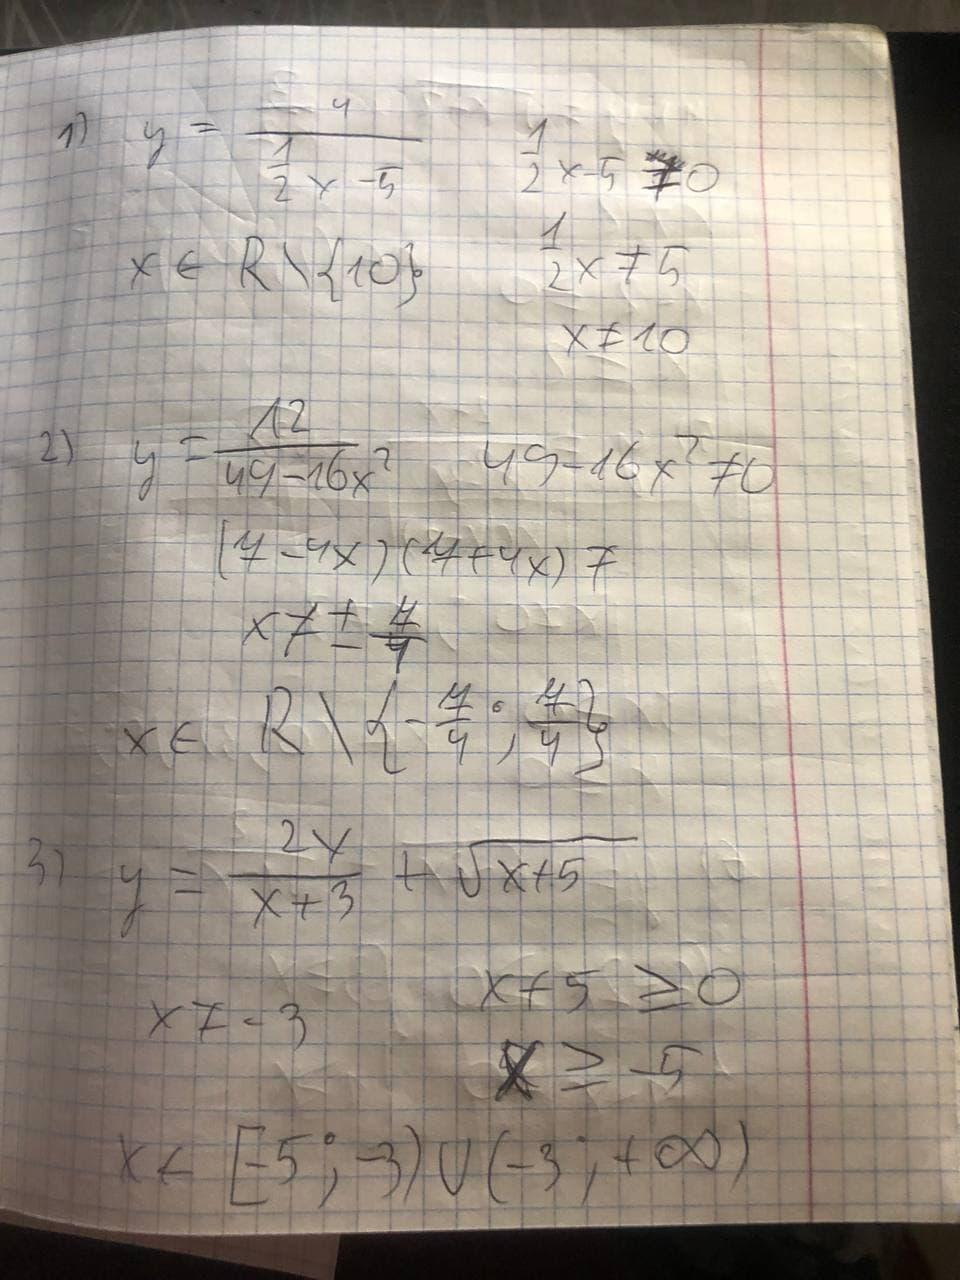 1) y = 4 / (1/2 x - 5)   1/2 x - 5 ≠ 0
1/2 x ≠ 5
x ∈ R \ {10}
x ≠ 10
2) y = 12 / (49 - 16x²)   49 - 16x² ≠ 0
(7 - 4x)(7 + 4x) ≠
x ≠ ± 7/4
x ∈ R \ {- 7/4 ; 7/4}
3) y = 2x / (x + 3) + √(x + 5)
x ≠ - 3   x + 5 ≥ 0
x ≥ -5
x ∈ [-5 ; -3) ∪ (-3 ; +∞)